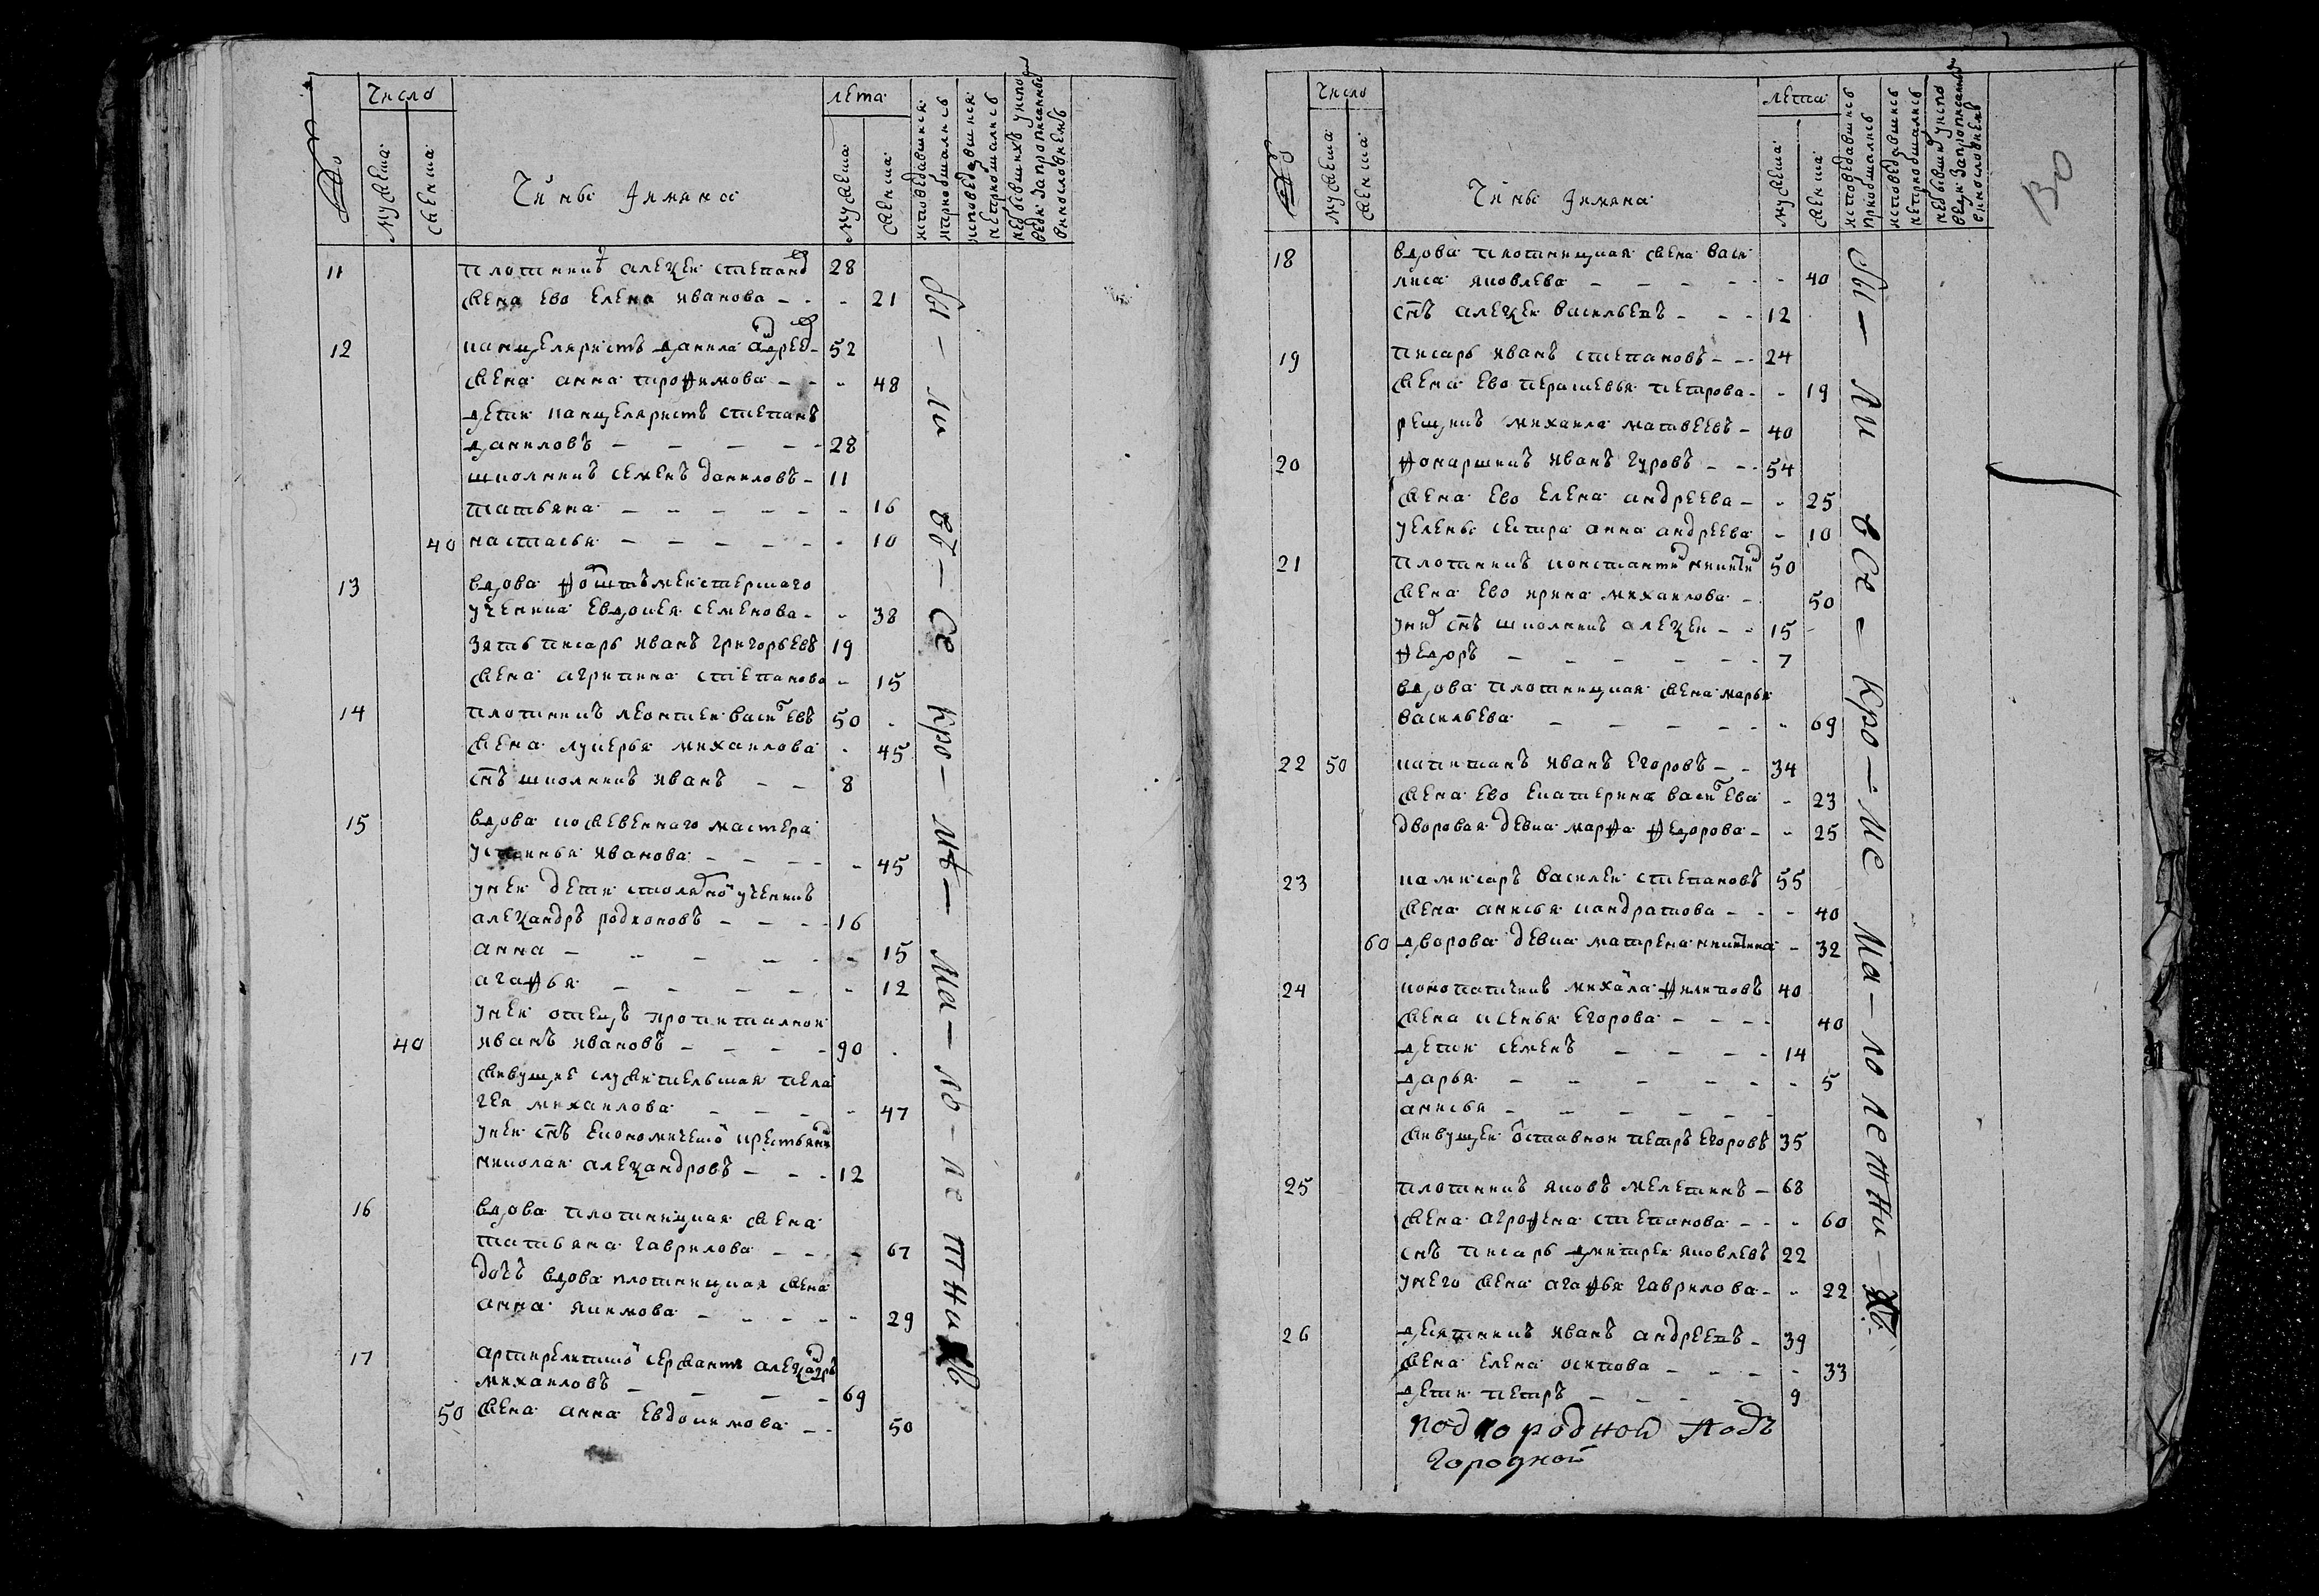 Число
лета
мужеска
женска
Чины Jимяна
мужеска
женска
исповедавшихся
и приобщались
исповедавшихся
неприобщались
небывшихъ уиспо
веди
11 плотникъ алеξеи степанов 28
жена ево елена иванова - - - 21
12 канцеляристъ данила андрее - 52
жена анна трофимова - - - 48
дети канцеляристъ степанъ
даниловъ - - - - - 28
школникъ семенъ даниловъ - 11
татьяна - - - - - - 16
40 настасья - - - - - - 10
13 вдова форштъмеистерскаго
ученика евдокея семенова - - 38
зять писарь иванъ григорьевъ 19
жена агрипина степанова - 15
14 плотникъ леонтеи васильевъ 50
жена лукерья михаилова - 45
снъ школникъ иванъ - - 8
15 вдова кожевеннаго мастера
устинья иванова - - - - - 45
унеи дети столярнои ученикъ
алеξандръ родионовъ - - - - 16
анна - - - - - - 15
агафья - - - - - 12
унеи отецъ пропиталнои
40 иванъ ивановъ - - - - 90
живущие служительская пела
гея михаилова - - - - - 47
унеи снъ економическо крестьянин
николаи алеξандровъ - - - 12
16 вдова плотницкая жена
татьяна гаврилова - - - - 67
дочъ вдова плотницкая жена
анна якимова - - - - - - 29
17 артирелискаго сержанта алеξандръ
михаиловъ - - - - 69
50 жена анна евдокимова - - 50
Число
лета
мужеска
женска
Чины Jимяна
мужеска
женска
исповедавшись
приобщались
исповедавшись
неприобщались
Во
18 вдова плотницкая жена васи
лиса яковлева - - - - - - 40
снъ алеξеи васильевъ - - - 12
19 писарь иванъ степановъ - - - 24
жена ево перасшевья петрова - - 19
рещикъ михаила матвеевъ - 40
20 фонарщикъ иванъ гуровъ - - - 54
жена ево елена андреева - - 25
уелены сестра анна андреева - 10
21 плотникъ константин никитин 50
жена ево ирина михаилова - 50
уних снъ школникъ алеξеи - - 15
федоръ - - - - - - 7
вдова плотницкая жена марья
васильева - - - - - - 69
22 50 капитанъ иванъ егоровъ - - 34
жена ево екатерина васильева - 23
дворовая девка марфа федорова - - 25
23 камисаръ василеи степановъ 55
жена анисья кандратова - - - 40
60 дворова девка матрена никитина - 32
24 конопатчикъ михаила филиповъ 40
жена ксенья егорова - - - - 40
дети семенъ - - - - 14
дарья - - - - - - 5
анисья - - - - - -
живущеи оставнои петръ егоровъ 35
25 плотникъ яковъ мелетинъ - 68
жена агрофена степанова - - - 60
снъ писарь дмитреи яковлевъ 22
унего жена агафья гаврилова - - 22
26 десятникъ иванъ андреевъ - 39
жена елена осипова - - - - 33
дети петръ - - - - - 9
подгородной подъ
городной